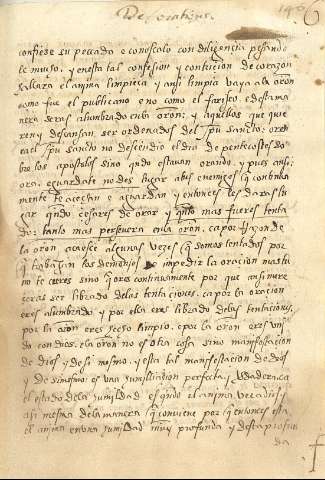 De oratione.
6
confiese su peccado e conoscalo con diligencia pesando
le mucho, y en esta tal confesion y contricion de coraçon
hallara el anima limpieça y ansi limpia vaya ala orōn
como fue el publicano e no como el fariseo, e desta ma
nera seras alumbrado en la orōn; y aquellos que quie
ren y desean ser ordenados del spū sancto; oren
ca el spū sancto no descendio el dia de pentecostes so
bre los apostolos sino qndo estavan orando, y pues ansi
ora, e guardate no des lugar a tus enemigos q continua
mente te acechan e aguardan y entonces les daras lu
gar qndo cesares de orar y qnto mas fueres tenta
do: tanto mas persevera en la orōn, ca por razon de
la orōn acaesce algunas vezes q somos tentados por
q trabajan los demonios impedir la oracion mas tu
no ceses sino q ores continuamente por que ansi mere
ceras ser librado de las tentaciones, ca por la oracion
eres alumbrado y por ella eres librado de las tentaciones,
por la orōn eres fecho limpio, e por la orōn eres uni
do con dios, e la orōn no es otra cosa sino manifestacion
de dios y de si mesmo, y esta tal manifestacion de dios
y de si mesmo es una humilliacion perfecta y verdadera ca
el estado de la humildad es qndo el anima vee a dios y
asi mesma de la manera q conviene por q entonces esta
el anima en una humildad muy profunda y desta profun
da